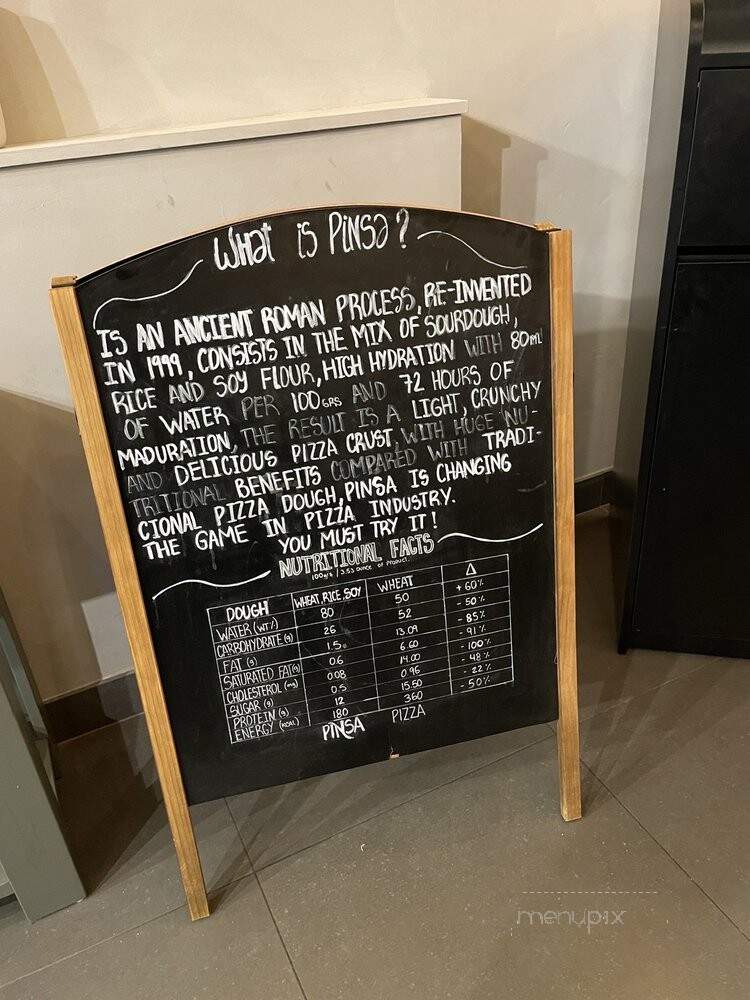 What is PiNSa?
IS AN ANCIENT ROMAN PROCESS, RE-INVENTED
IN 1999, CONSISTS IN THE MIX OF SOURDOUGH,
RICE AND SOY FLOUR, HIGH HYDRATION WITH 80ml
OF WATER PER 100GRS AND 72 HOURS OF
MADURATION, THE RESULT IS A LIGHT, CRUNCHY
AND DELICIOUS PIZZA CRUST, WITH HUGE NU-
TRITIONAL BENEFITS COMPARED WITH TRADI-
CIONAL PIZZA DOUGH, PINSA IS CHANGING
THE GAME IN PIZZA INDUSTRY.
YOU MUST TRY IT!
NUTRITIONAL FACTS
100g/lb / 3.53 ounce of product.
DOUGH WHEAT, RICE, SOY WHEAT Δ
WATER (WT%) 80 50 +60%
CARBOHYDRATE (g) 26 52 -50%
FAT (g) 1.5 13.09 -85%
SATURATED FAT(g) 0.6 6.60 -91%
CHOLESTEROL (mg) 0.08 14.00 -100%
SUGAR (g) 0.5 0.96 -48%
PROTEIN (g) 12 15.50 -22%
ENERGY (KCAL) 180 360 -50%
PINSA PIZZA
menupix